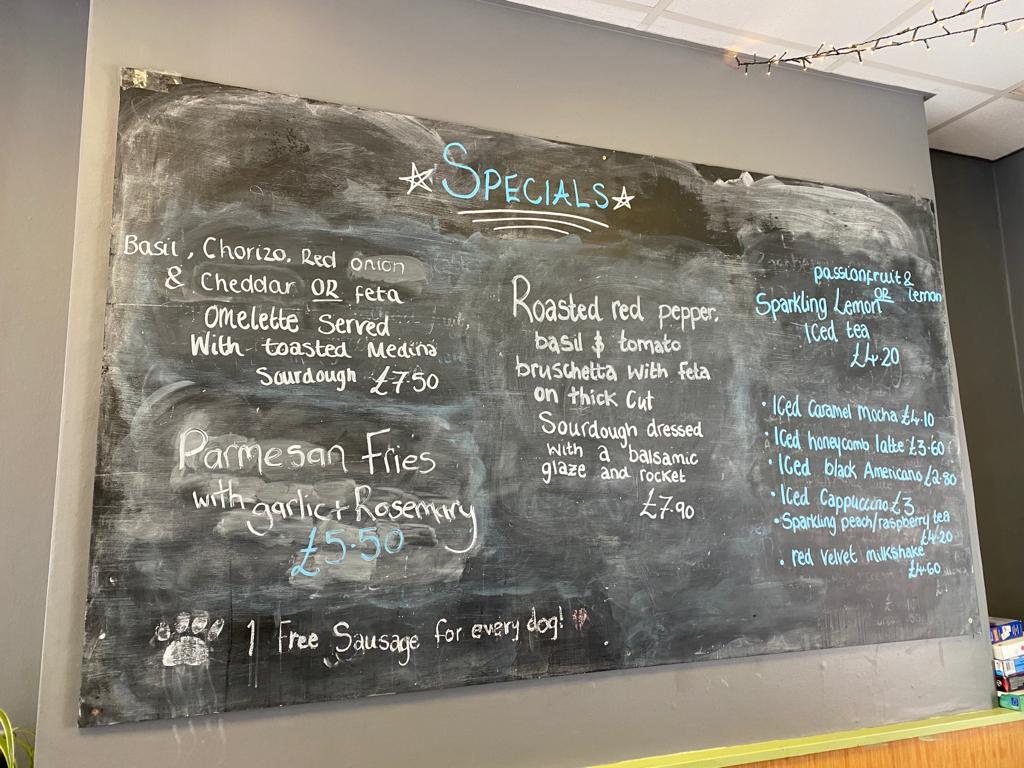 SPECIALS
Basil, Chorizo, Red onion
& Cheddar OR feta
Omelette Served
With toasted Medina
Sourdough £7.50
Parmesan Fries
with garlic + Rosemary
£5.50
Roasted red pepper,
basil & tomato
bruschetta with feta
on thick cut
Sourdough dressed
with a balsamic
glaze and rocket
£7.90
passionfruit &
lemon
OR
Sparkling Lemon
Iced tea
£4.20
• Iced Caramel Mocha £4.10
• Iced honeycomb latte £3.60
• Iced black Americano £2.80
• Iced Cappuccino £3
• Sparkling peach/raspberry tea
£4.20
• red velvet milkshake
£4.60
1 Free Sausage for every dog!